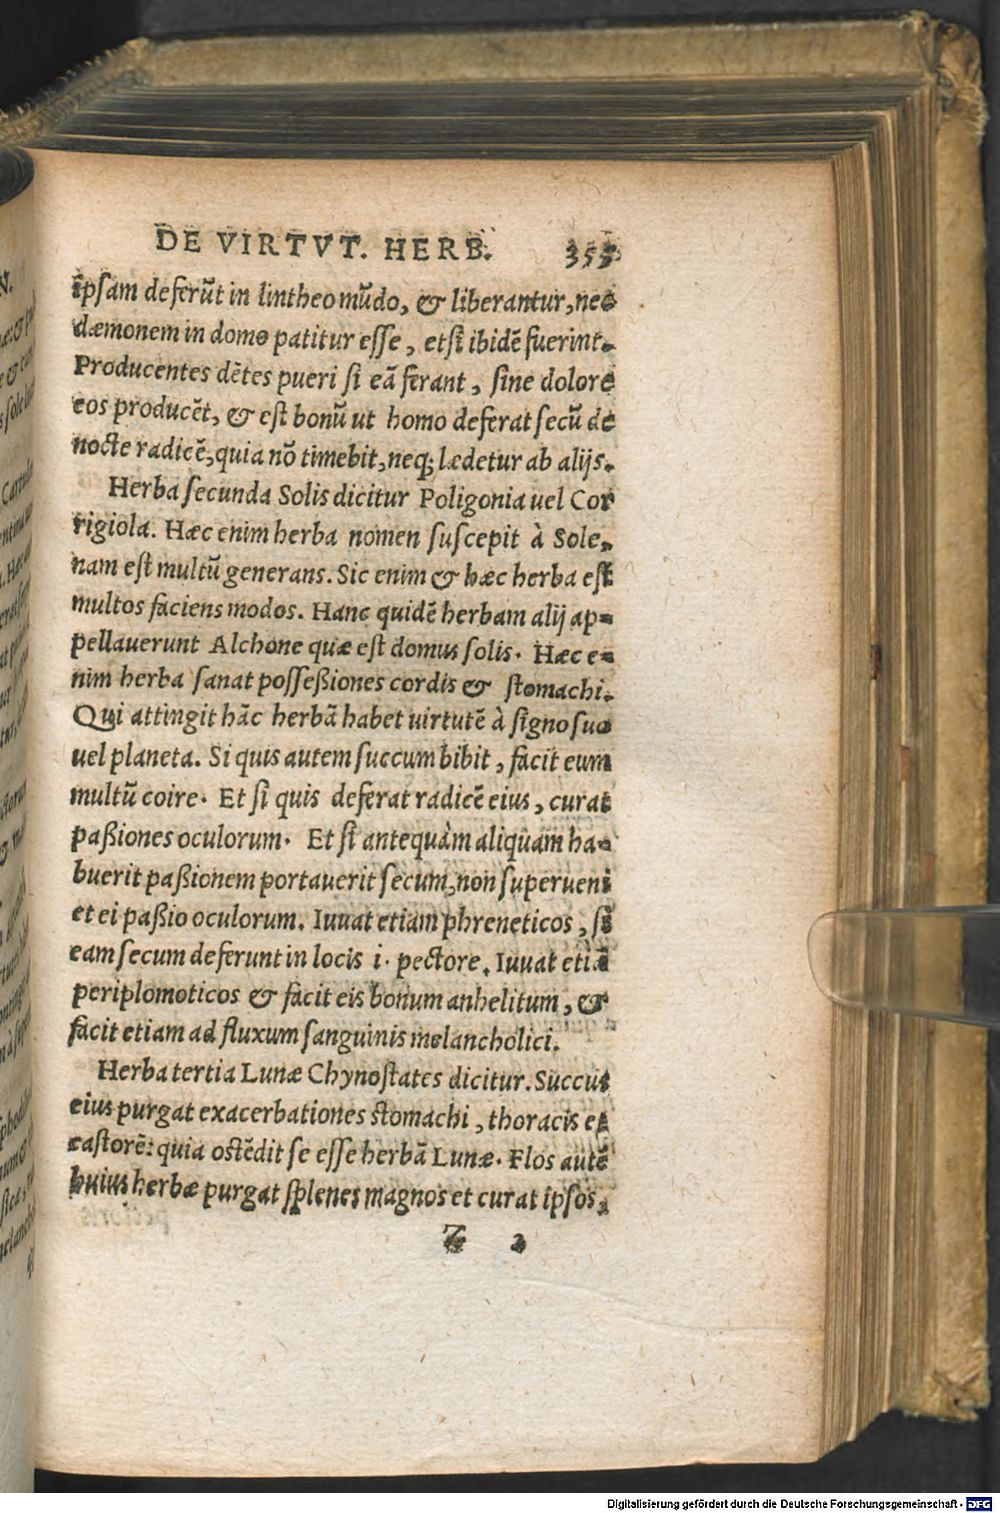 DE VIRTVT. HERB. 355
ipsam deferūt in lintheo mūdo, & liberantur, nec
dæmonem in domo patitur esse, etsi ibidē fuerint.
Producentes dētes pueri si eā ferant, sine dolore
eos producēt, & est bonū ut homo deferat secū de
nocte radicē, quia nō timebit, neq; lædetur ab alijs.
Herba secunda Solis dicitur Poligonia uel Cor
rigiola. Hæc enim herba nomen suscepit à Sole,
nam est multū generans. Sic enim & hæc herba est
multos faciens modos. Hanc quidē herbam alij ap-
pellauerunt Alchone quæ est domus solis. Hæc e-
nim herba sanat posseßiones cordis & stomachi.
Qui attingit hāc herbā habet uirtutē à signo suo
uel planeta. Si quis autem succum bibit, facit eum
multū coire. Et si quis deferat radicē eius, curat
paßiones oculorum. Et si antequàm aliquam ha-
buerit paßionem portauerit secum, non superueni
et ei paßio oculorum. Iuuat etiam phreneticos, si
eam secum deferunt in locis i. pectore. Iuuat etiā
periplomoticos & facit eis bonum anhelitum, &
facit etiam ad fluxum sanguinis melancholici.
Herba tertia Lunæ Chynostates dicitur. Succus
eius purgat exacerbationes stomachi, thoracis et
castorē: quia ostēdit se esse herbā Lunæ. Flos autē
huius herbæ purgat splenes magnos et curat ipsos,
Z 2
Digitalisierung gefördert durch die Deutsche Forschungsgemeinschaft - DFG